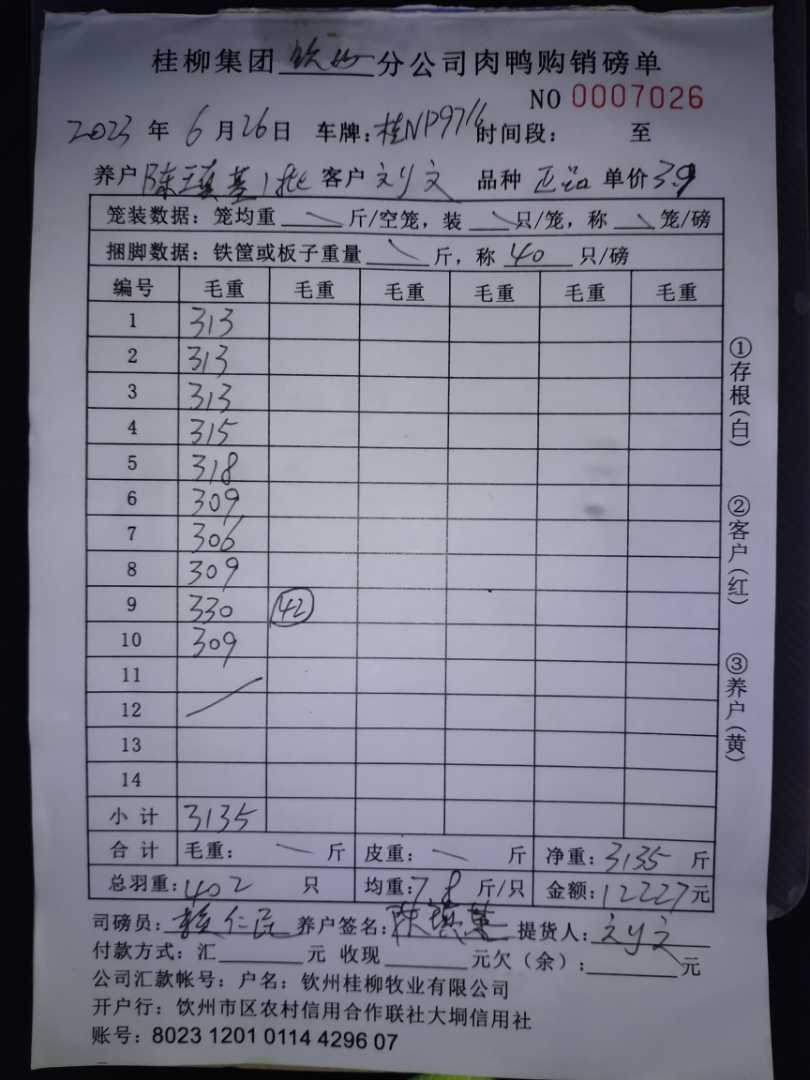 桂柳集团 钦州 分公司肉鸭购销磅单
NO 0007026
2023 年 6 月 26 日 车牌: 桂NP971 时间段: 至
养户 陈瑱基 1批 客户 刘文 品种 正品 单价 3.9
笼装数据: 笼均重 斤/空笼, 装 只/笼, 称 笼/磅
捆脚数据: 铁筐或板子重量 斤, 称 40 只/磅
编号 毛重 毛重 毛重 毛重 毛重 毛重
1 313
2 313
3 313
4 315
5 318
6 309
7 306
8 309
9 330 42
10 309
11
12
13
14
小计 3135
合计 毛重: 斤 皮重: 斤 净重: 3135 斤
总羽重: 402 只 均重: 7.8 斤/只 金额: 12227 元
司磅员: 仁民 养户签名: 陈瑱基 提货人: 刘文
付款方式: 汇 元 收现 元欠(余): 元
公司汇款帐号: 户名: 钦州桂柳牧业有限公司
开户行: 钦州市区农村信用合作联社大垌信用社
账号: 8023 1201 0114 4296 07
①存根(白)
②客户(红)
③养户(黄)